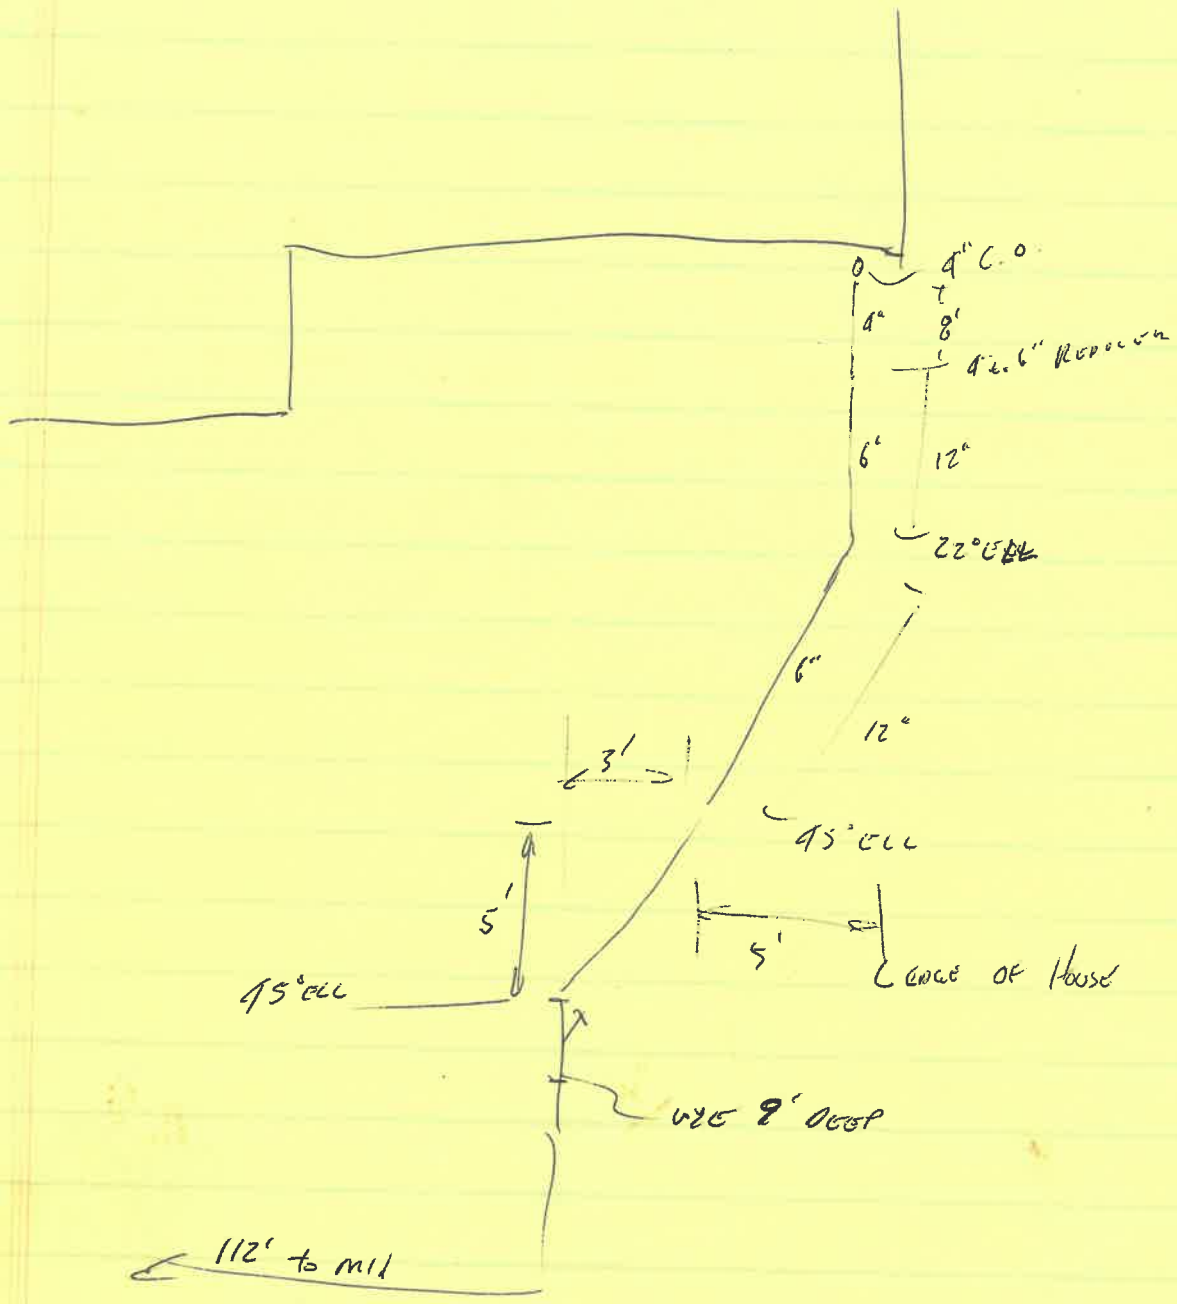 4" C.O.
4"
8'
4 to 6" REDUCER
6"
12"
22° ELL
6"
12"
3'
45° ELL
5'
5'
EDGE OF HOUSE
45° ELL
WYE 9' DEEP
112' to MH